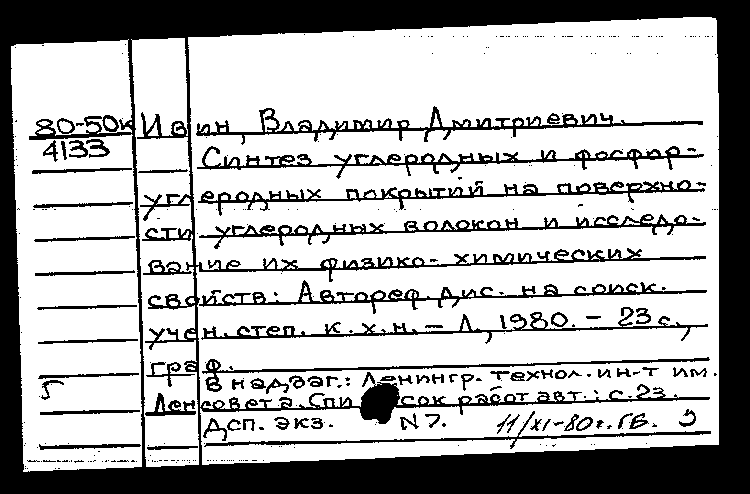 80-50к Ивин, Владимир Дмитриевич.
4133 Синтез углеродных и фосфор-
углеродных покрытий на поверхно-
сти углеродных волокон и исследо-
вание их физико-химических
свойств: Автореф. дис. на соиск.
учен. степ. к. х. н. – Л., 1980. – 23 с.,
граф.
В надзаг.: Ленингр. технол. ин-т им.
Ленсовета. Список работ авт.: с. 23.
Дсп. экз. N 7. 11/XI-80г. ГБ.